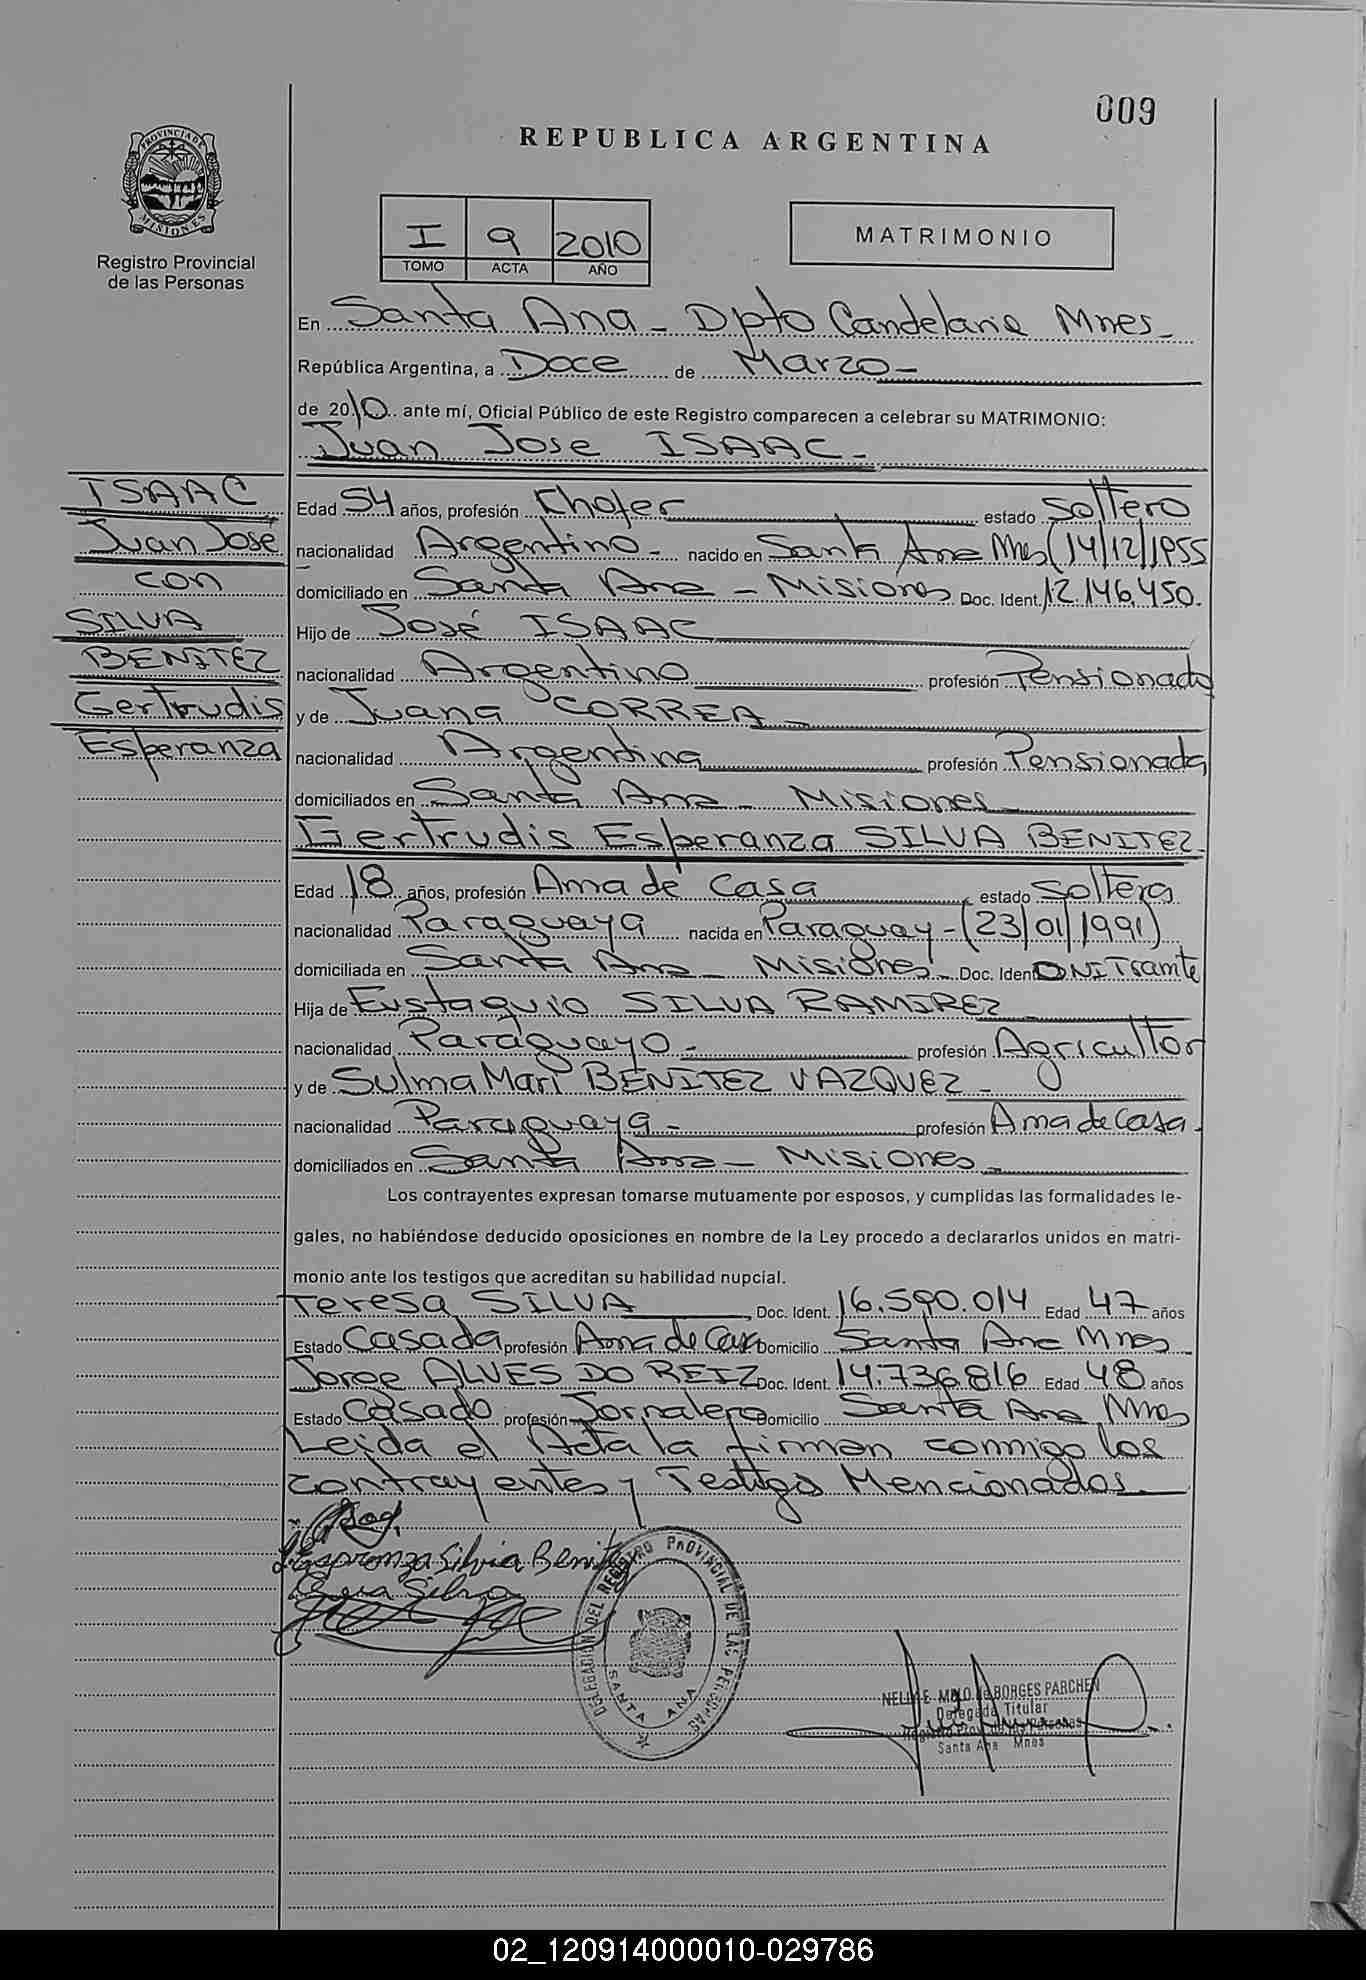 009
REPUBLICA ARGENTINA
PROVINCIA DE MISIONES
Registro Provincial
de las Personas
I 9 2010
TOMO ACTA AÑO
MATRIMONIO
En Santa Ana - Dpto Candelaria Mnes-
República Argentina, a Doce de Marzo-
de 2010 ante mí, Oficial Público de este Registro comparecen a celebrar su MATRIMONIO:
Juan Jose ISAAC-
ISAAC
Juan José
con
SILVA
BENITEZ
Gertrudis
Esperanza
Edad 54 años, profesión Chofer estado Soltero
nacionalidad Argentino- nacido en Santa Ana Mnes (14/12/1955
domiciliado en Santa Ana - Misiones Doc. Ident. 12.146.450.
Hijo de José ISAAC
nacionalidad Argentino profesión Pensionado
y de Juana CORREA-
nacionalidad Argentina profesión Pensionada
domiciliados en Santa Ana - Misiones
Gertrudis Esperanza SILVA BENITEZ
Edad 18 años, profesión Ama de Casa estado Soltera
nacionalidad Paraguaya nacida en Paraguay-(23/01/1991)
domiciliada en Santa Ana - Misiones- Doc. Ident DNI Tramite
Hija de Eustaquio SILVA RAMIREZ
nacionalidad Paraguayo- profesión Agricultor
y de Sulma Mari BENITEZ VAZQUEZ-
nacionalidad Paraguaya- profesión Ama de Casa.
domiciliados en Santa Ana - Misiones-
Los contrayentes expresan tomarse mutuamente por esposos, y cumplidas las formalidades le-
gales, no habiéndose deducido oposiciones en nombre de la Ley procedo a declararlos unidos en matri-
monio ante los testigos que acreditan su habilidad nupcial.
Teresa SILVA Doc. Ident. 16.590.014 Edad 47 años
Estado Casada profesión Ama de Casa Domicilio Santa Ana Mnes
Jorge ALVES DO REIZ Doc. Ident. 14.736.816 Edad 48 años
Estado Casado profesión Jornalero Domicilio Santa Ana Mnes
Leida el Acta la firman conmigo los
contrayentes y Testigos Mencionados
Esperanza Silvia Benitez
Silva
DELEGACION DEL REGISTRO PROVINCIAL DE LAS PERSONAS
SANTA ANA
NELI E. MELO de BORGES PARCHEN
Delegada Titular
Registro Provincial de las Personas
Santa Ana Mnes
02_120914000010-029786